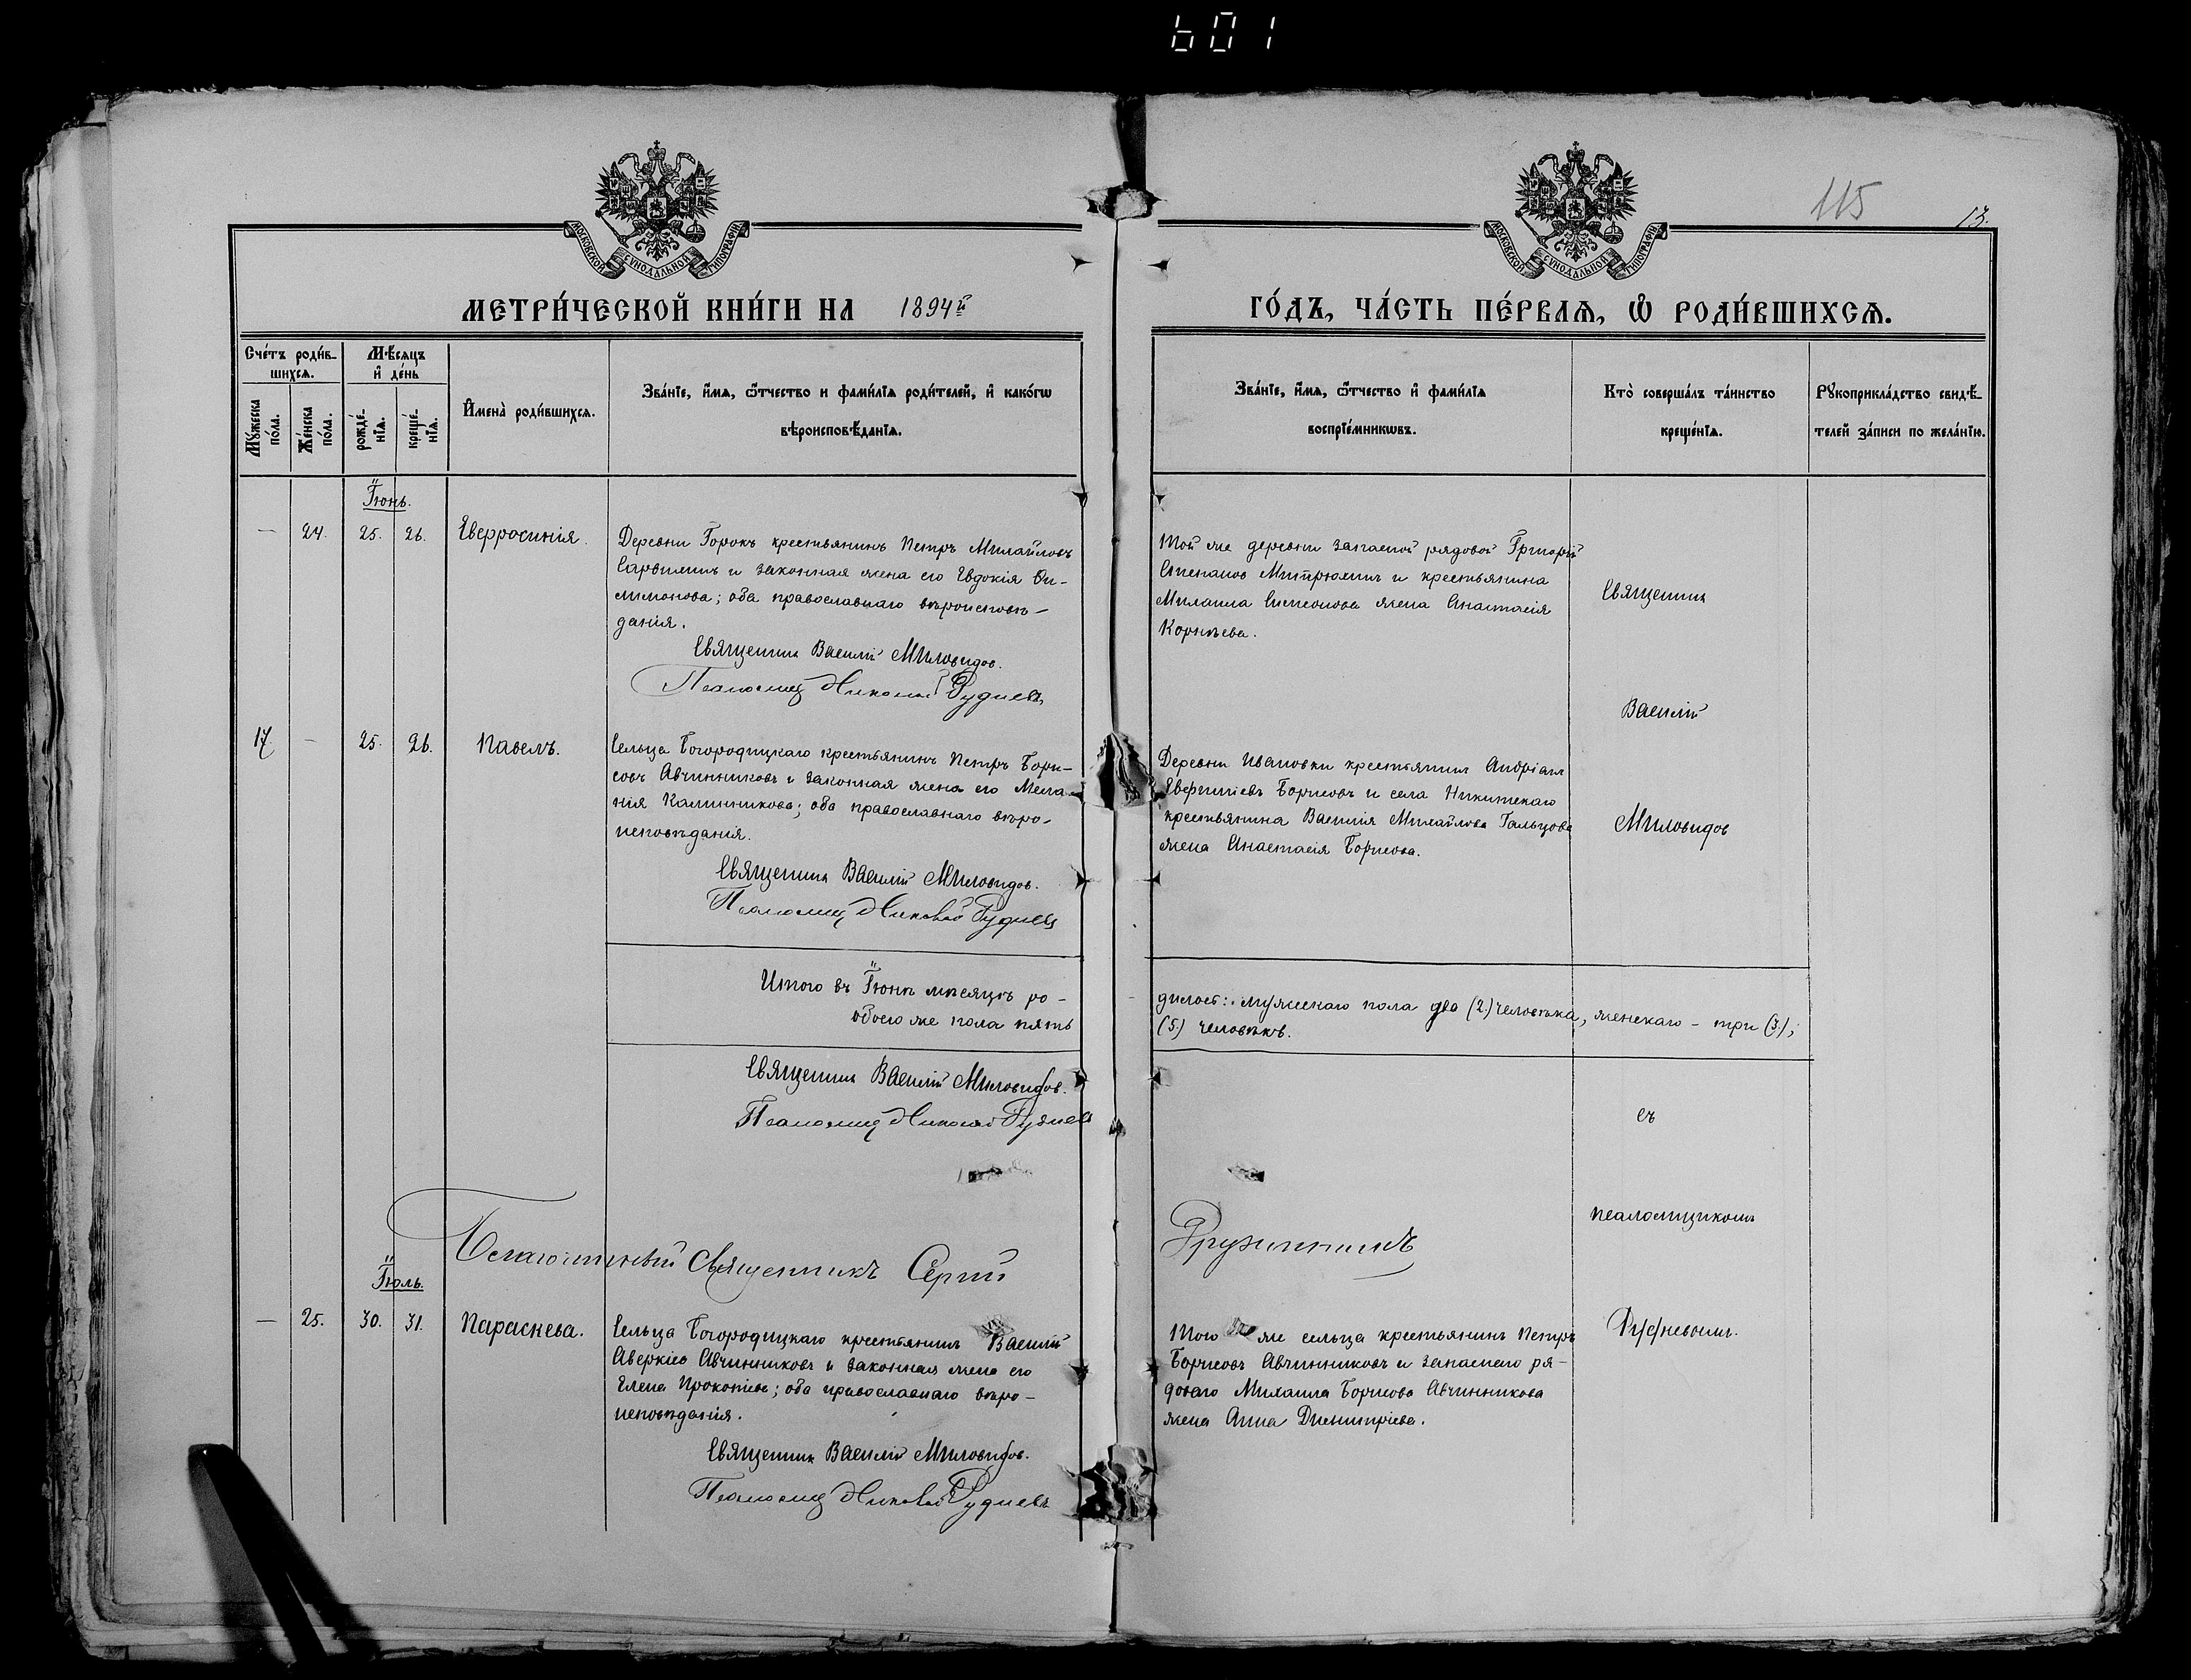 601
115
13.
МОСКОВСКОЙ СѴНОДАЛЬНОЙ ТИПОГРАФІИ
МОСКОВСКОЙ СѴНОДАЛЬНОЙ ТИПОГРАФІИ
МЕТРИ́ЧЕСКОЙ КНИ́ГИ НА 1894й
ГО́ДЪ, ЧА́СТЬ ПЕ́РВАѦ, Ѿ РОДИ́ВШИХСѦ.
Сче́тъ роди́в-
шихсѧ.
Мꙋ́жеска по́ла.
Же́нска по́ла.
Мѣ́сѧцъ
и҆ де́нь
рожде́-
нїѧ.
креще́-
нїѧ.
И҆мена̀ роди́вшихсѧ.
Зва́нїе, и҆́мѧ, ѻ҆́тчество и фами́лїѧ роди́телей, и҆ како́гѡ
вѣроисповѣ́данїѧ.
Зва́нїе, и҆́мѧ, ѻ҆́тчество и҆ фами́лїѧ
воспрїе́мникѡвъ.
Кто̀ соверша́лъ та́инство
креще́нїѧ.
Рꙋкоприкла́дство свидѣ́-
телей за́писи по жела́нїю.
Іюнь.
— 24. 25. 26. Евфросинія.
Деревни Горокъ крестьянинъ Петръ Михайловъ
и законная жена его Евдокія Фи-
лимонова; оба православнаго вѣроисповѣ-
данія.
Священникъ Василій Миловидов.
Псаломщ. Николай Руднев
Той же деревни запасной рядовой Григорій
Степанов Митрюхин и крестьянина
Михаила Симеонова жена Анастасія
Корнѣева.
Священник
Василій
Миловидов
17. — 25. 26. Павелъ.
Сельца Богородицкаго крестьянинъ Петръ Бори-
совъ Авчинниковъ и законная жена его Мела-
нія Калинникова; оба православнаго вѣро-
исповѣданія.
Священник Василій Миловидов.
Псаломщ. Николай Руднев
Деревни Ивановки крестьянин Андріан
Евфиміевъ Борисовъ и села Никитскаго
крестьянина Василія Михайлова Гальцова
жена Анастасія Борисова.
Итого въ Іюнѣ мѣсяцѣ ро-
дилось: мужескаго пола два (2.) человѣка, женскаго – три (3.);
обоего же пола пять
(5.) человѣкъ.
Священник Василій Миловидов.
Псаломщ. Николай Руднев
съ
псаломщиком
Рудневоимъ.
Благочинный Священникъ Сергій
Іюль.
— 25. 30. 31. Параскева.
Сельца Богородицкаго крестьянин Василій
Аверкіев Авчинниковъ и законная жена его
Елена Прокопіева; оба православнаго вѣро-
исповѣданія.
Священник Василій Миловидов.
Псаломщ. Николай Руднев
Того же сельца крестьянинъ Петръ
Борисовъ Авчинниковъ и запаснаго ря-
доваго Михаила Борисова Авчинникова
жена Анна Димитріева.